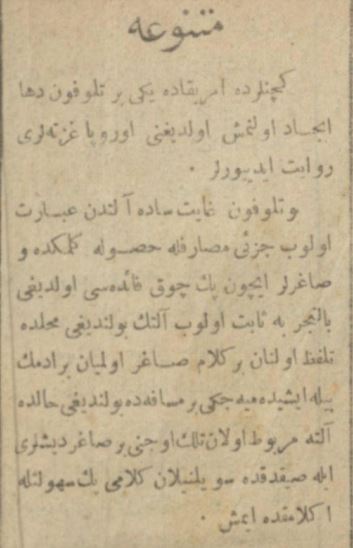 متنوعه
كچنلرده امريقاده يكى بر تلوفون دها
ايجاد اولنمش اولديغنى اوروپا غزته‌لرى
روايت ايديورلر .
و تلوفون غايت ساده آلتدن عبارت
اولوب جزئى مصارفله حصوله كلمكده و
صاغرلر ايچون پك چوق فائده‌سى اولديغى
بالتجر به ثابت اولوب آلتك بولنديغى محلده
تلفظ اولنان بر كلام صاغر اولميان بر ادمك
بيله ايشيده‌ميه جكى بر مسافه‌ده بولنديغى حالده
آلته مربوط اولان تلك اوجنى بر صاغر ديشلرى
ايله صيقدقده سويلنيلان كلامى پك سهولتله
اكلامقده ايمش .